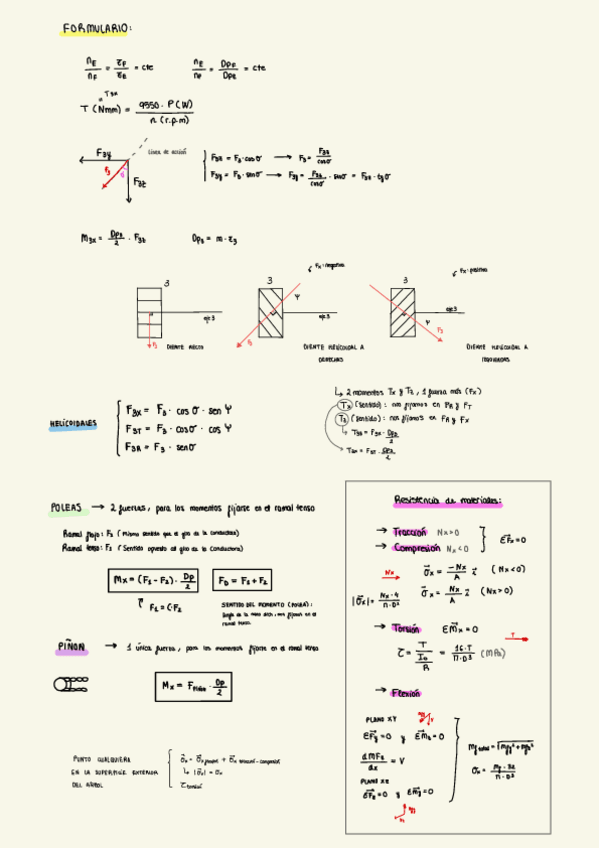 FORMULARIO:
n_E / n_F = z_F / z_E = cte    n_E / n_F = Dp_F / Dp_E = cte
T_3x
T (Nmm) = 9550 · P (W) / n (r.p.m)
F3y
Línea de acción
F3
F3z
F3z = F3 · cos σ → F3 = F3z / cos σ
F3y = F3 · sen σ → F3y = F3z / cos σ · sen σ = F3z · tg σ
M3x = Dp3 / 2 · F3z    Dp3 = m · z3
Fx: negativa
Fx: positiva
3    3    3
ψ
eje 3    eje 3    eje 3
ψ
F3    F3    F3
DIENTE RECTO
DIENTE HELICOIDAL A DERECHAS
DIENTE HELICOIDAL A IZQUIERDAS
↳ 2 momentos Tx y Tz, 1 fuerza más (Fx)
Tx (sentido): nos fijamos en FR y FT
Tz (sentido): nos fijamos en FR y Fx
T3z = F3x · Dp3 / 2
T3x = F3T · Dp3 / 2
HELICOIDALES
F3x = F3 · cos σ · sen ψ
F3T = F3 · cos σ · cos ψ
F3R = F3 · sen σ
POLEAS → 2 fuerzas, para los momentos fijarse en el ramal tenso
Ramal flojo: F2 (Mismo sentido que el giro de la conductora)
Ramal tenso: F1 (Sentido opuesto al giro de la conductora)
Mx = (F1 - F2) · Dp / 2
FD = F1 + F2
F1 = C · F2
SENTIDO DEL MOMENTO (POLEA):
ramal tenso.
PIÑON → 1 única fuerza, para los momentos fijarse en el ramal tenso
Mx = F piñon · Dp / 2
PUNTO CUALQUIERA
EN LA SUPERFICIE EXTERIOR
DEL ARBOL
σx = σx flexión + σx tracción-compresión
↳ |σx| = σx
τ torsión
Resistencia de materiales:
→ Tracción Nx>0
→ Compresión Nx<0
ΣFx=0
Nx
σx = -Nx / A i (Nx<0)
|σx| = Nx · 4 / π · D²
σx = Nx / A i (Nx>0)
→ Torsión ΣMx=0
T
τ = T / (Io / R) = 16 · T / π · D³ (MPa)
→ Flexión
PLANO XY
ΣFy=0 y ΣMz=0
dMFz / dx = V
PLANO XZ
ΣFz=0 y ΣMy=0
Mf total = √(Mfy² + Mfz²)
σx = Mf · 32 / π · D³